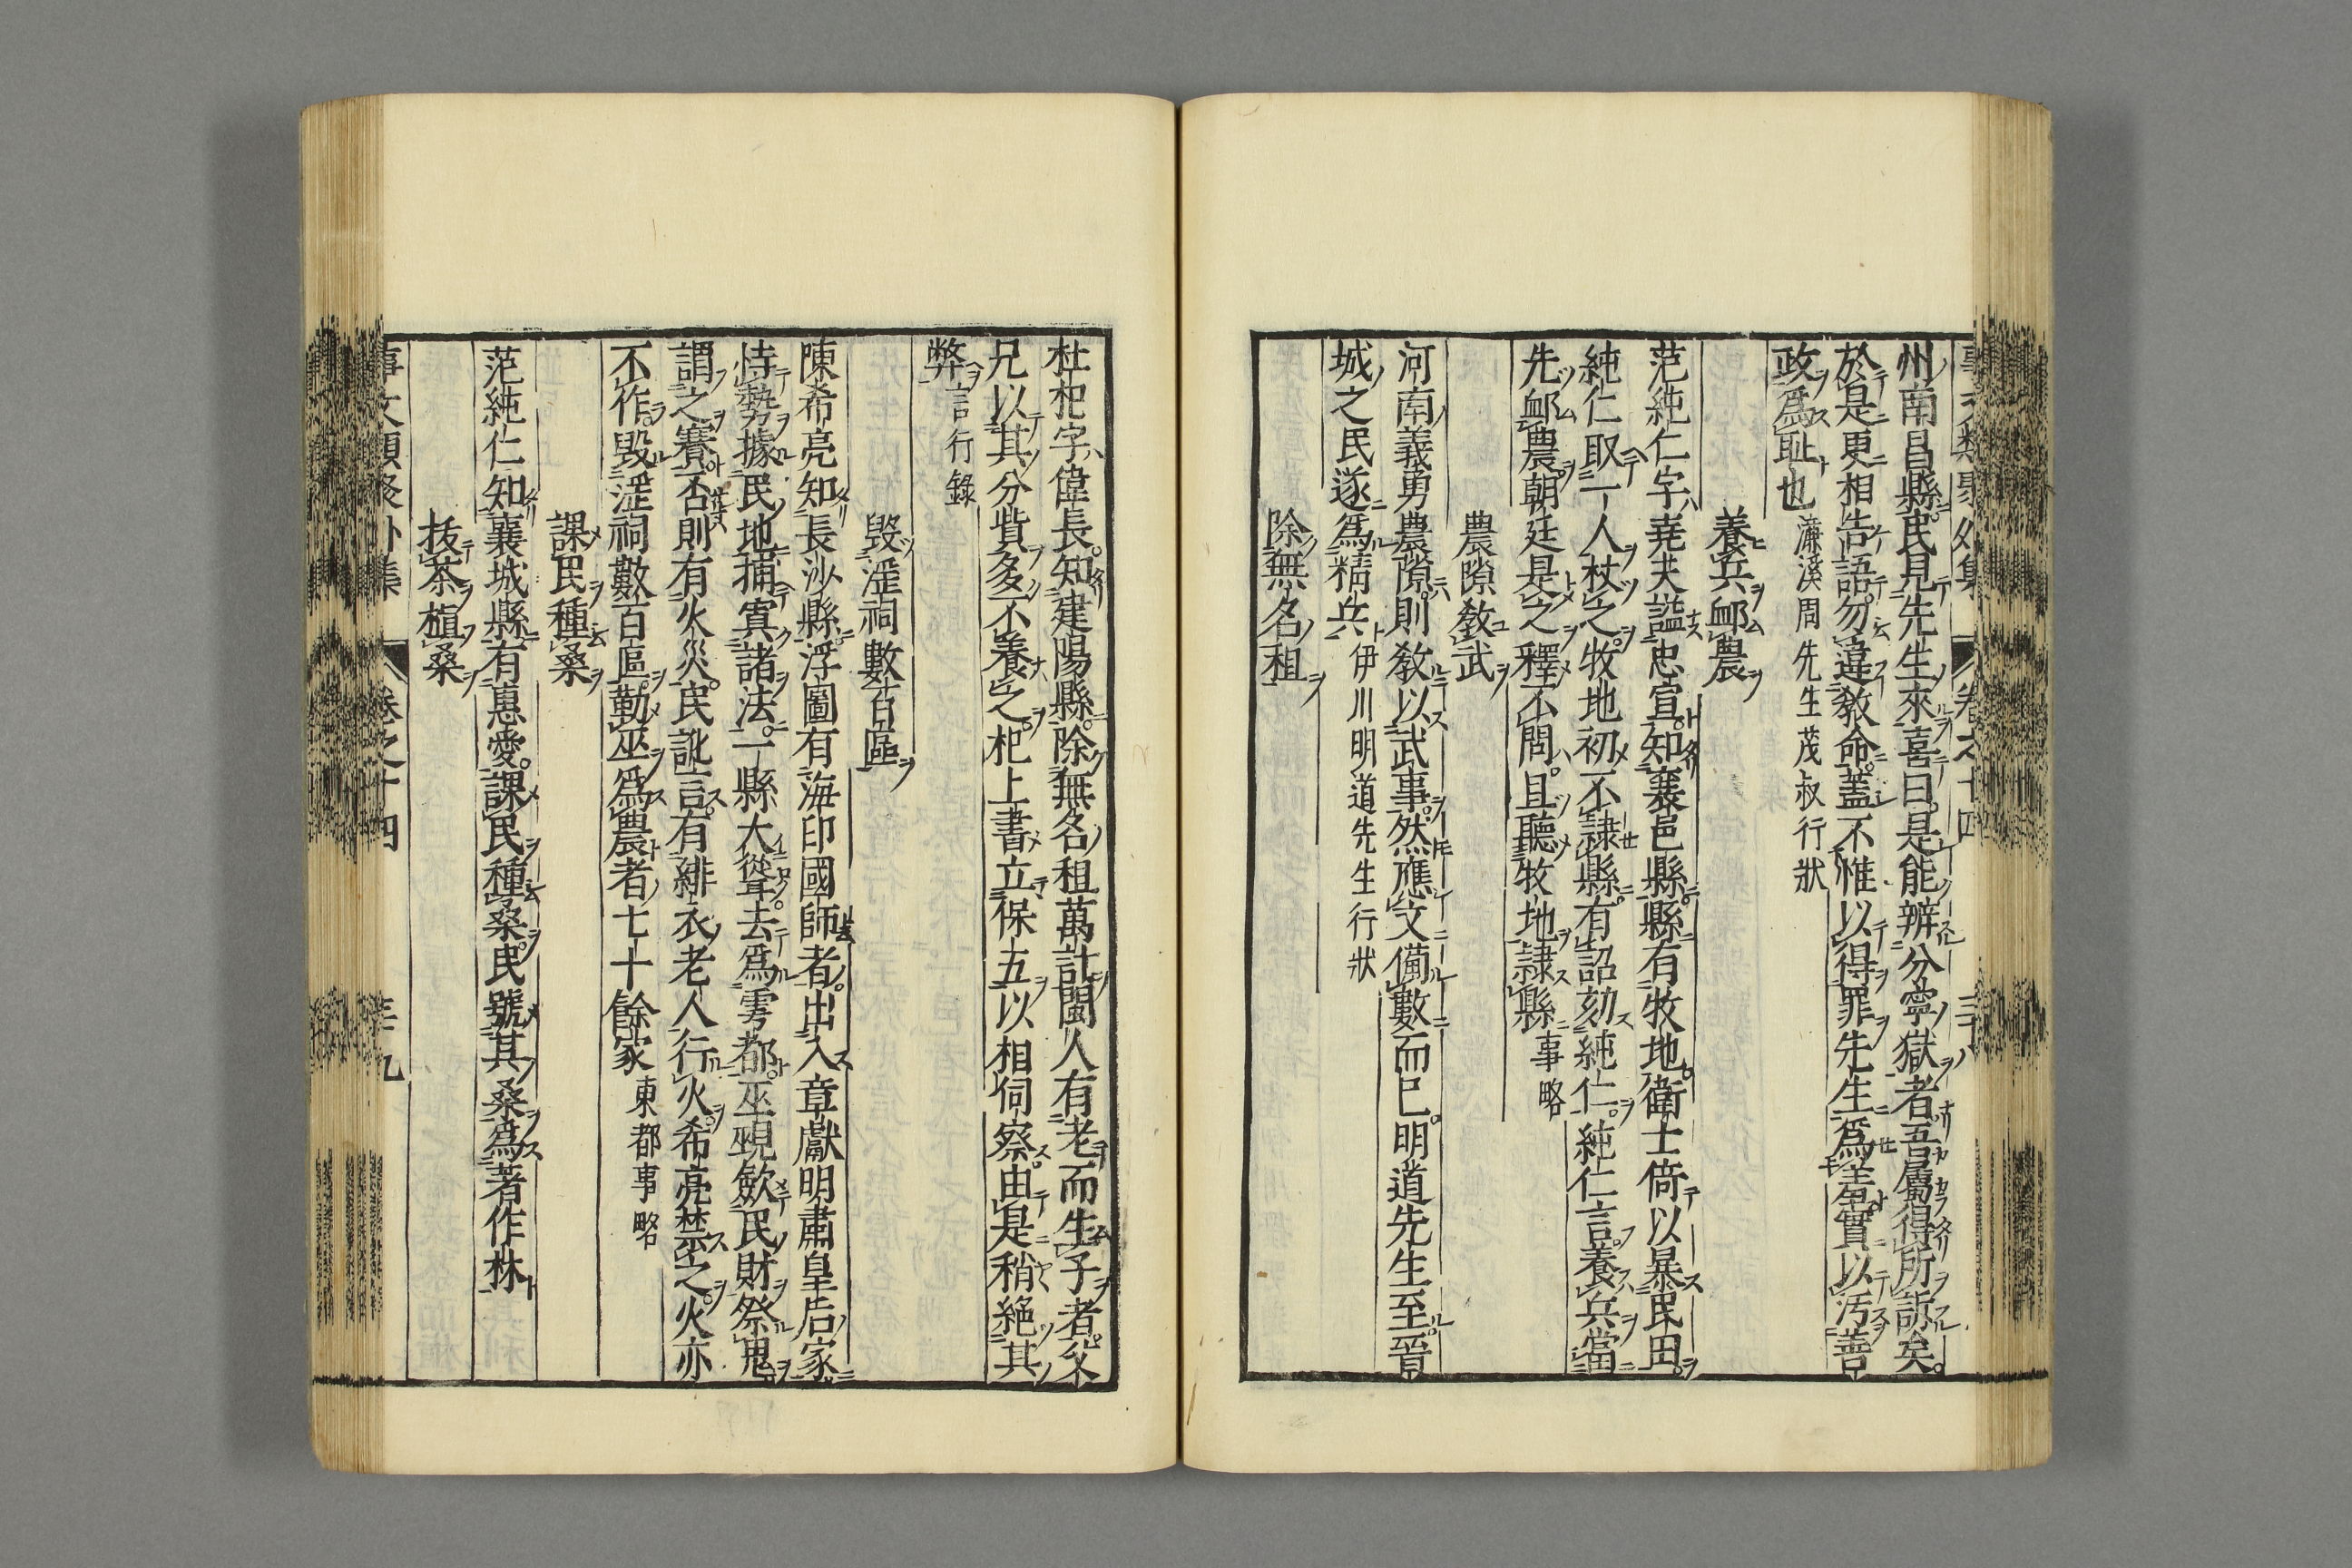 州南昌縣民見先生來喜曰是能辨分寧獄者吾屬得所訴矣
於是更相告語勿違教命蓋不惟以得罪先生爲羞實以汚善
政爲耻也濂溪周先生茂叔行狀
養兵䘏農
范純仁字堯夫謚忠宣知襄邑縣縣有牧地衛士倚以暴民田
純仁取一人杖之牧地初不隷縣有詔劾純仁純仁言養兵當
先䘏農朝廷是之釋不問且聽牧地隷縣事略
農隙敎武
河南義勇農隙則敎以武事然應文備數而已明道先生至晉
城之民遂爲精兵伊川明道先生行狀
除無名租
杜杞字偉長知建陽縣除無名租萬計閩人有老而生子者父
兄以其分貲多不養之杞上書立保五以相伺察由是稍絶其
弊言行錄
毀淫祠數百區
陳希亮知長沙縣浮圖有海印國師者出入章獻明肅皇后家
恃勢據民地捕寘諸法一縣大聳去爲雩都巫覡歛民財祭鬼
謂之賽否則有火災民訛言有緋衣老人行火希亮禁之火亦
不作毀淫祠數百區勒巫爲農者七十餘家東都事略
課民種桑
范純仁知襄城縣有惠愛課民種桑民號其桑爲著作林
拔茶植桑
事文類聚外集 卷之十四 三十九